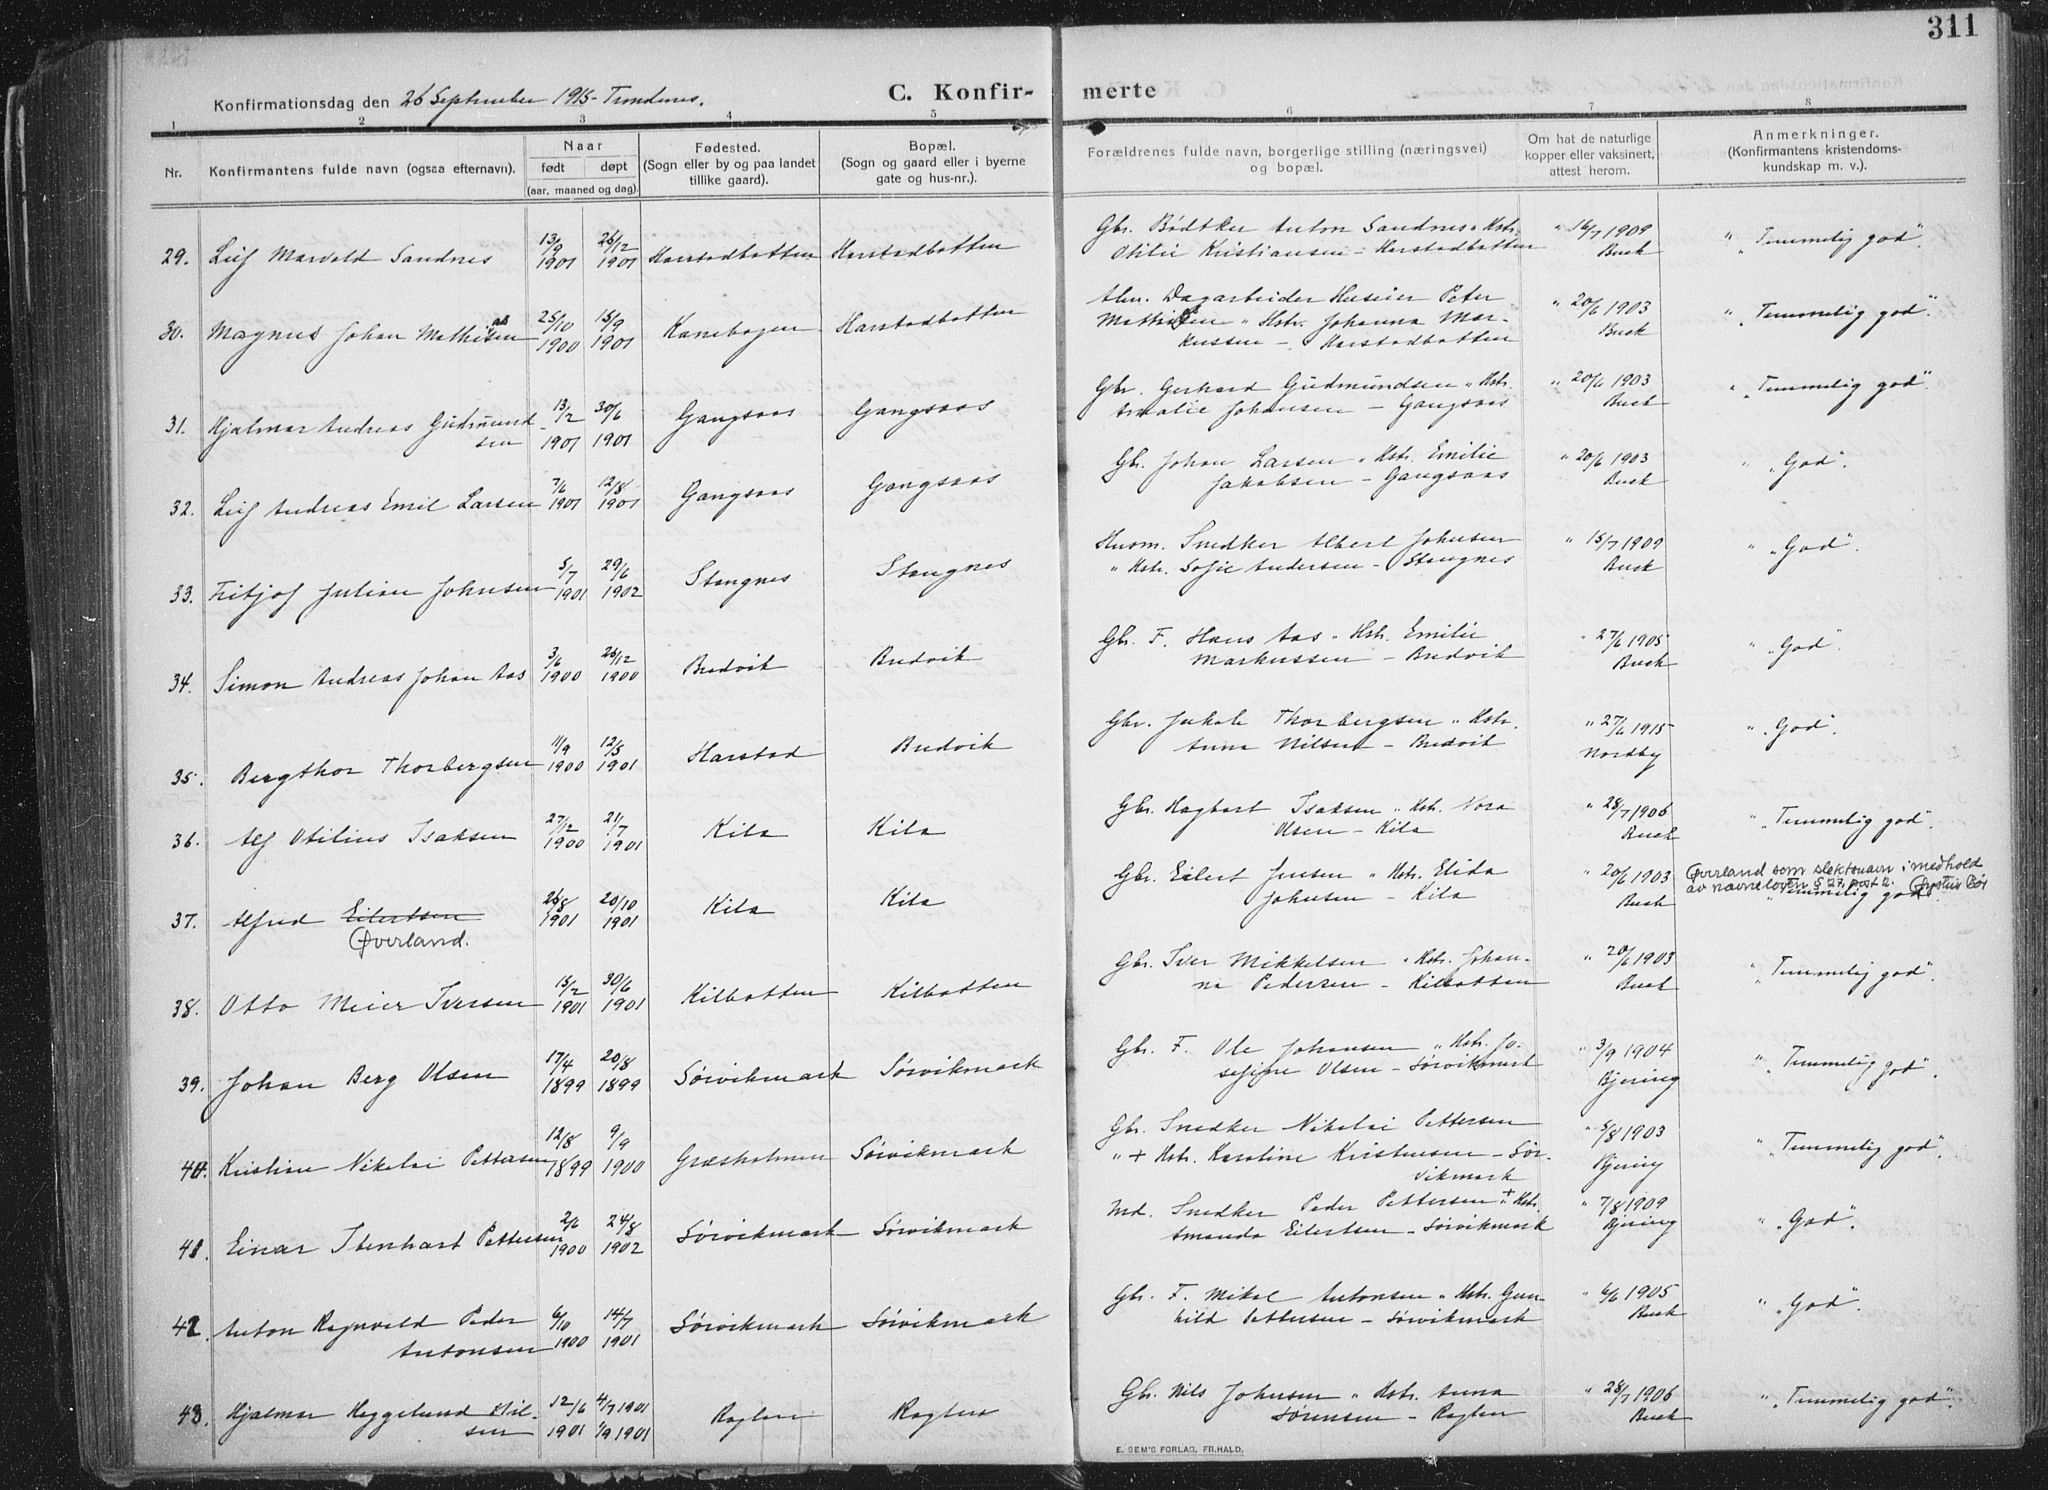 311
Konfirmationsdag den 26 September 1915 - Trondenes.
C. Konfir- merte
1 2 3 4 5 6 7 8
Nr.
Konfirmantens fulde navn (ogsaa efternavn).
Naar
født døpt
(aar, maaned og dag).
Fødested.
(Sogn eller by og paa landet
tillike gaard).
Bopæl.
(Sogn og gaard eller i byerne
gate og hus-nr.).
Forældrenes fulde navn, borgerlige stilling (næringsvei)
og bopæl.
Om hat de naturlige
kopper eller vaksinert,
attest herom.
Anmerkninger.
(Konfirmantens kristendoms-
kundskap m. v.).
29. Leif Marvold Sandnes 13/9 1901 26/12 1901 Harstadbotten Harstadbotten
Gbr. Bødtker Anton Sandnes " Hstr. " 16/7 1909 " "Temmelig god".
Otilie Kristiansen - Harstadbotten Busk
30. Magnus Johan Mathisen 25/10 1900 15/9 1901 Kanebogen Harstadbotten
Alm. Dagarbeider Huseier Peter " 20/6 1903 " "Temmelig god".
Mathisen " Hstr. Johanna Mar- Busk
kussen - Harstadbotten
31. Hjalmar Andreas Gudmund- 13/2 1901 30/6 1901 Gangsaas Gangsaas
sen
Gbr. Gerhard Gudmundsen " Hstr. " 20/6 1903 " "Temmelig god".
Amalie Johansen - Gangsaas Busk
32. Leif Andreas Emil Larsen 7/6 1901 12/8 1901 Gangsaas Gangsaas
Gbr. Johan Larsen " Hstr. Emilie " 20/6 1903 " "God".
Jakobsen - Gangsaas Busk
33. Fritjof Julian Johnsen 5/7 1901 29/6 1902 Stangnes Stangnes
Husm. Snedker Albert Johnsen " 15/7 1909 " "God".
" Hstr. Sofie Andersen - Stangnes Busk
34. Simon Andreas Johan Aas 3/6 1900 26/12 1900 Brudvik Brudvik
Gbr. F. Hans Aas " Hstr. Emilie " 27/6 1905 " "God".
Markussen - Brudvik Busk
35. Bergthor Thorbergsen 11/9 1900 12/5 1901 Harstad Brudvik
Gbr. Jakob Thorbergsen " Hstr. " 27/6 1915 " "God".
Anna Nilsen - Brudvik Nordby
36. Alf Otilius Isaksen 27/12 1900 21/7 1901 Kila Kila
Gbr. Hagbart Isaksen " Hstr. Nora " 28/7 1906 " "Temmelig god".
Olsen - Kila Busk
37. Alfred Eilertsen 26/8 1901 20/10 1901 Kila Kila
Øverland.
Gbr. Eilert Jensen " Hstr. Elida " 20/6 1903 Øverland som slektsnavn i medhold
Johnsen - Kila Busk av navneloven § 27, post 2.
"Temmelig god".
38. Otto Meier Iversen 15/2 1901 30/6 1901 Kilbotten Kilbotten
Gbr. Iver Mikkelsen " Hstr. Johan- " 20/6 1903 " "Temmelig god".
na Pedersen - Kilbotten Busk
39. Johan Berg Olsen 17/4 1899 20/8 1899 Sørvikmark Sørvikmark
Gbr. F. Ole Johansen " Hstr. Jo- " 3/9 1904 " "Temmelig god".
sefine Olsen - Sørvikmark Bjering
40. Kristian Nikolai Pettersen 12/8 1899 9/9 1900 Græsholmen Sørvikmark
Gbr. Snedker Nikolai Pettersen " 5/8 1903 " "Temmelig god".
" + Hstr. Karoline Kristensen - Sør- Bjering
vikmark
41. Einar Ibenhart Pettersen 2/6 1900 24/8 1902 Sørvikmark Sørvikmark
Md. Snedker Peder Pettersen + " Hstr. " 7/8 1909 " "God".
Amanda Eilertsen - Sørvikmark Bjering
42. Anton Ragnvald Peder 6/10 1900 14/7 1901 Sørvikmark Sørvikmark
Antonsen
Gbr. F. Mikal Antonsen " Hstr. Gun- " 6/6 1905 " "God".
hild Pettersen - Sørvikmark Busk
43. Hjalmar Heggelund Nil- 12/6 1901 4/7 1901 Røgten Røgten
sen 1/9 1901
Gbr. Nils Johnsen " Hstr. Anna " 28/7 1906 " "Temmelig god".
Sørensen - Røgten Busk
E. SEM'S FORLAG, FR.HALD.